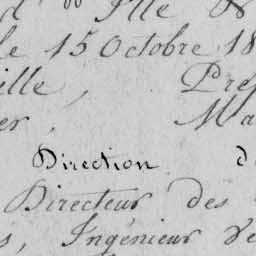 d'Ille &
le 15 Octobre 18
ille, Pref
er, Ma
Direction d
Directeur des
s, Ingénieur Ve